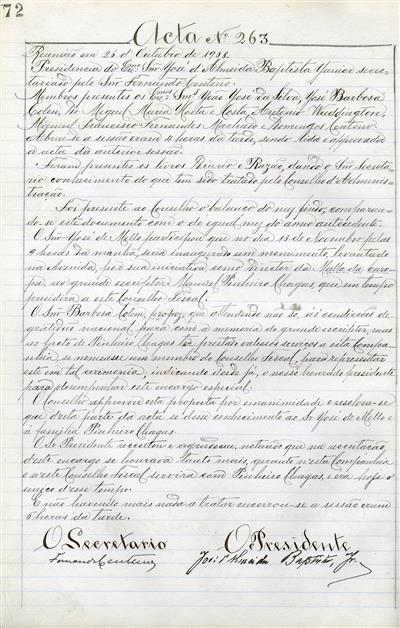 72
Acta Nº 263
Reunião em 25 d'Outubro de 1908.
Presidencia do Exmo Snr José d'Almeida Baptista Junior secre-
tariado pelo Snr Fernando Centeno
Membros presentes os Exmos Snrs João José da Silva, José Barbosa
Colen, Miguel Maria Motta e Costa, Antonio Waddington,
Fernandes Machado e Domingos Centeno
Abriu-se a sessão eram 4 horas da tarde, sendo lida e approvada
a acta da anterior sessão.
Foram presentes os livros Diario e Razão, dando o Snr Secreta-
rio conhecimento do que tem sido tratado pelo Conselho d'Adminis-
tração.
Foi presente ao Conselho o balanço do mez findo, comparan-
do-se este documento com o de egual mez do anno antecedente.
O Snr José de Mello participou que no dia 15 de Novembro pelas
9 horas da manhã, seria inaugurado um monumento, levantado
na Avenida, por sua iniciativa como Director da Malla da Euro-
pa, ao grande escriptor Manuel Pinheiro Chagas, que em tempo
presidira a este Conselho Fiscal.
O Snr Barbosa Colen, propoz, que attendendo não só, ás condições de
gratidão nacional para com a memoria do grande escriptor, mas
ao facto de Pinheiro Chagas ter prestado valiosos serviços a esta Compa-
nhia, se nomeasse um membro do Conselho Fiscal, para representar
este em tal ceremonia, indicando desde já, o nosso honrado presidente
para desempenhar este encargo especial.
O Conselho approvou esta proposta por unanimidade e resolveu-se
que d'esta parte da acta se désse conhecimento ao Sr José de Mello e
á familia Pinheiro Chagas.
O Sr Presidente acceitou e agradeceu, notando que na acceitação
d'este encargo se honrava tanto mais, quanto n'esta Companhia
e n'este Conselho Fiscal servira com Pinheiro Chagas, e era hoje o
unico d'esse tempo.
E não havendo mais nada a tratar encerrou-se a sessão eram
5 horas da tarde.
O Secretario O Presidente
Fernando Centeno José d'Almeida Baptista, Jr.